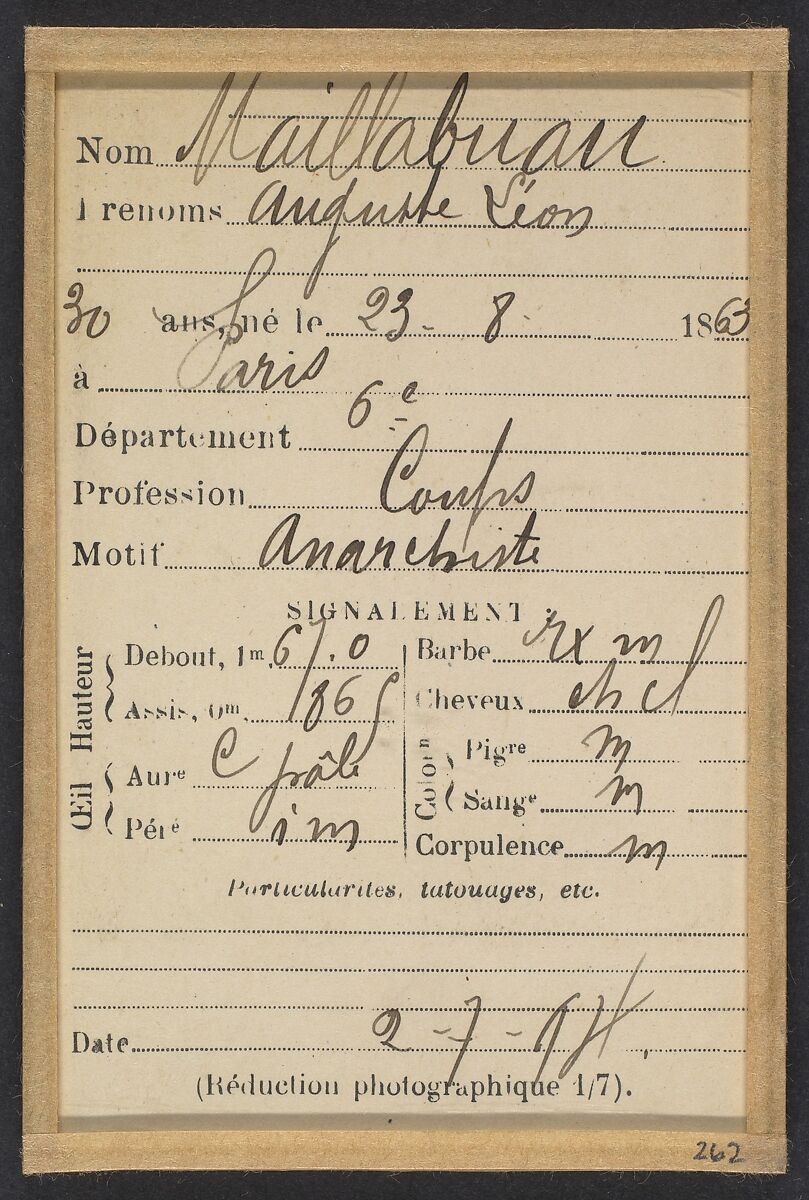 Nom Maillabuau
Prenoms Auguste Léon
30 ans, né le 23 - 8 - 1863
à Paris
Département 6e
Profession
Motif Anarchiste
SIGNALEMENT :
Hauteur
Debout, 1m, 67.0
Assis, 0m, 865
Œil
Aure C pâle
Péré i m
Barbe rx m
Cheveux ch cl
Colorn
Pigre m
Sange m
Corpulence m
Particularités, tatouages, etc.
Date 2 - 7 - 94.
(Réduction photographique 1/7).
262